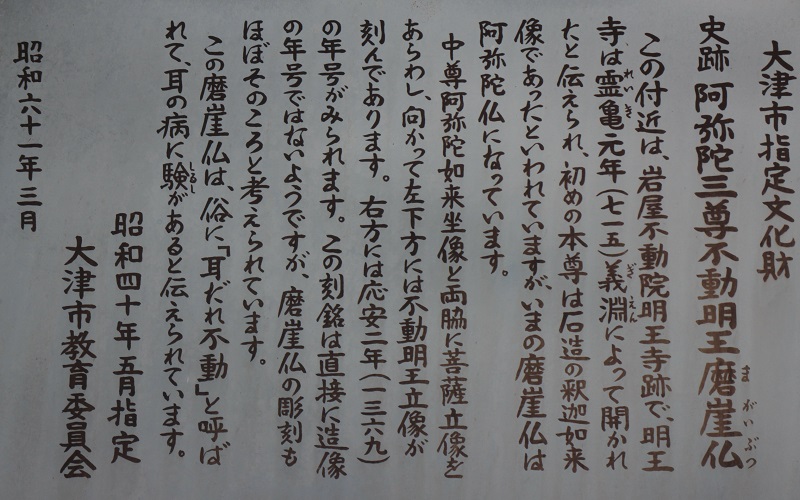 大津市指定文化財
史跡 阿弥陀三尊不動明王磨崖仏
まがいぶつ
この付近は、岩屋不動院明王寺跡で、明王
寺は霊亀元年(七一五)義淵によって開かれ
れいき
ぎえん
たと伝えられ、初めの本尊は石造の釈迦如来
像であったといわれていますが、いまの磨崖仏は
阿弥陀仏になっています。
中尊阿弥陀如来坐像と両脇に菩薩立像を
あらわし、向かって左下方には不動明王立像が
刻んであります。右方には応安二年(一三六九)
の年号がみられます。この刻銘は直接に造像
の年号ではないようですが、磨崖仏の彫刻も
ほぼそのころと考えられています。
この磨崖仏は、俗に「耳だれ不動」と呼ば
れて、耳の病に験があると伝えられています。
しるし
昭和四十年五月指定
大津市教育委員会
昭和六十一年三月